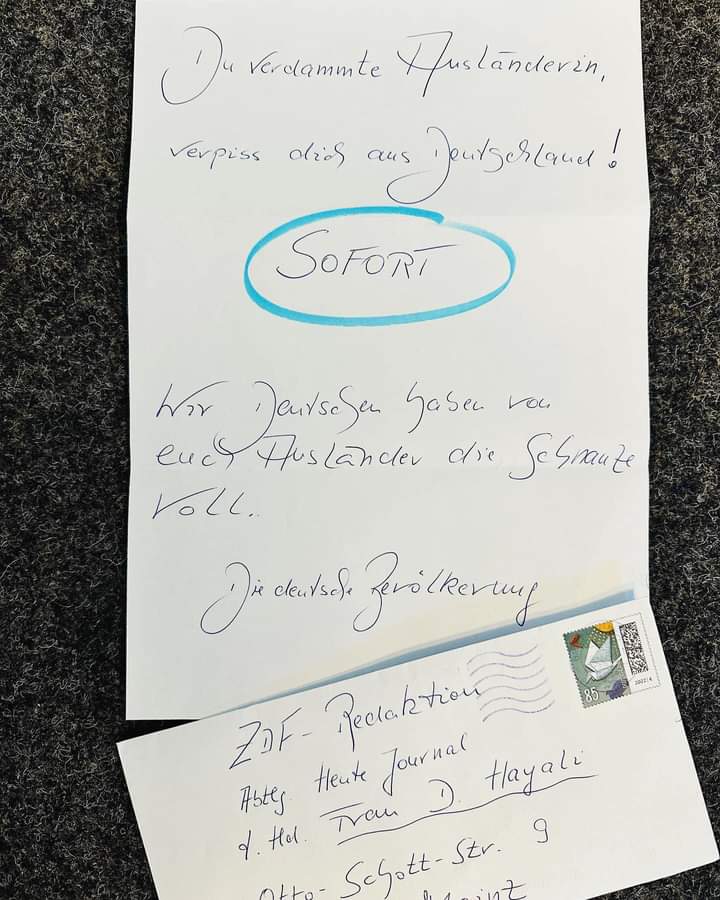 Du verdammte Ausländerin,
verpiss dich aus Deutschland!
SOFORT
Wir Deutschen haben von
euch Ausländer die Schnauze
voll.
Die deutsche Bevölkerung
85
ZDF-Redaktion
Abtlg Heute Journal
z. Hd. Frau D. Hayali
Otto-Schott-Str. 9
Mainz